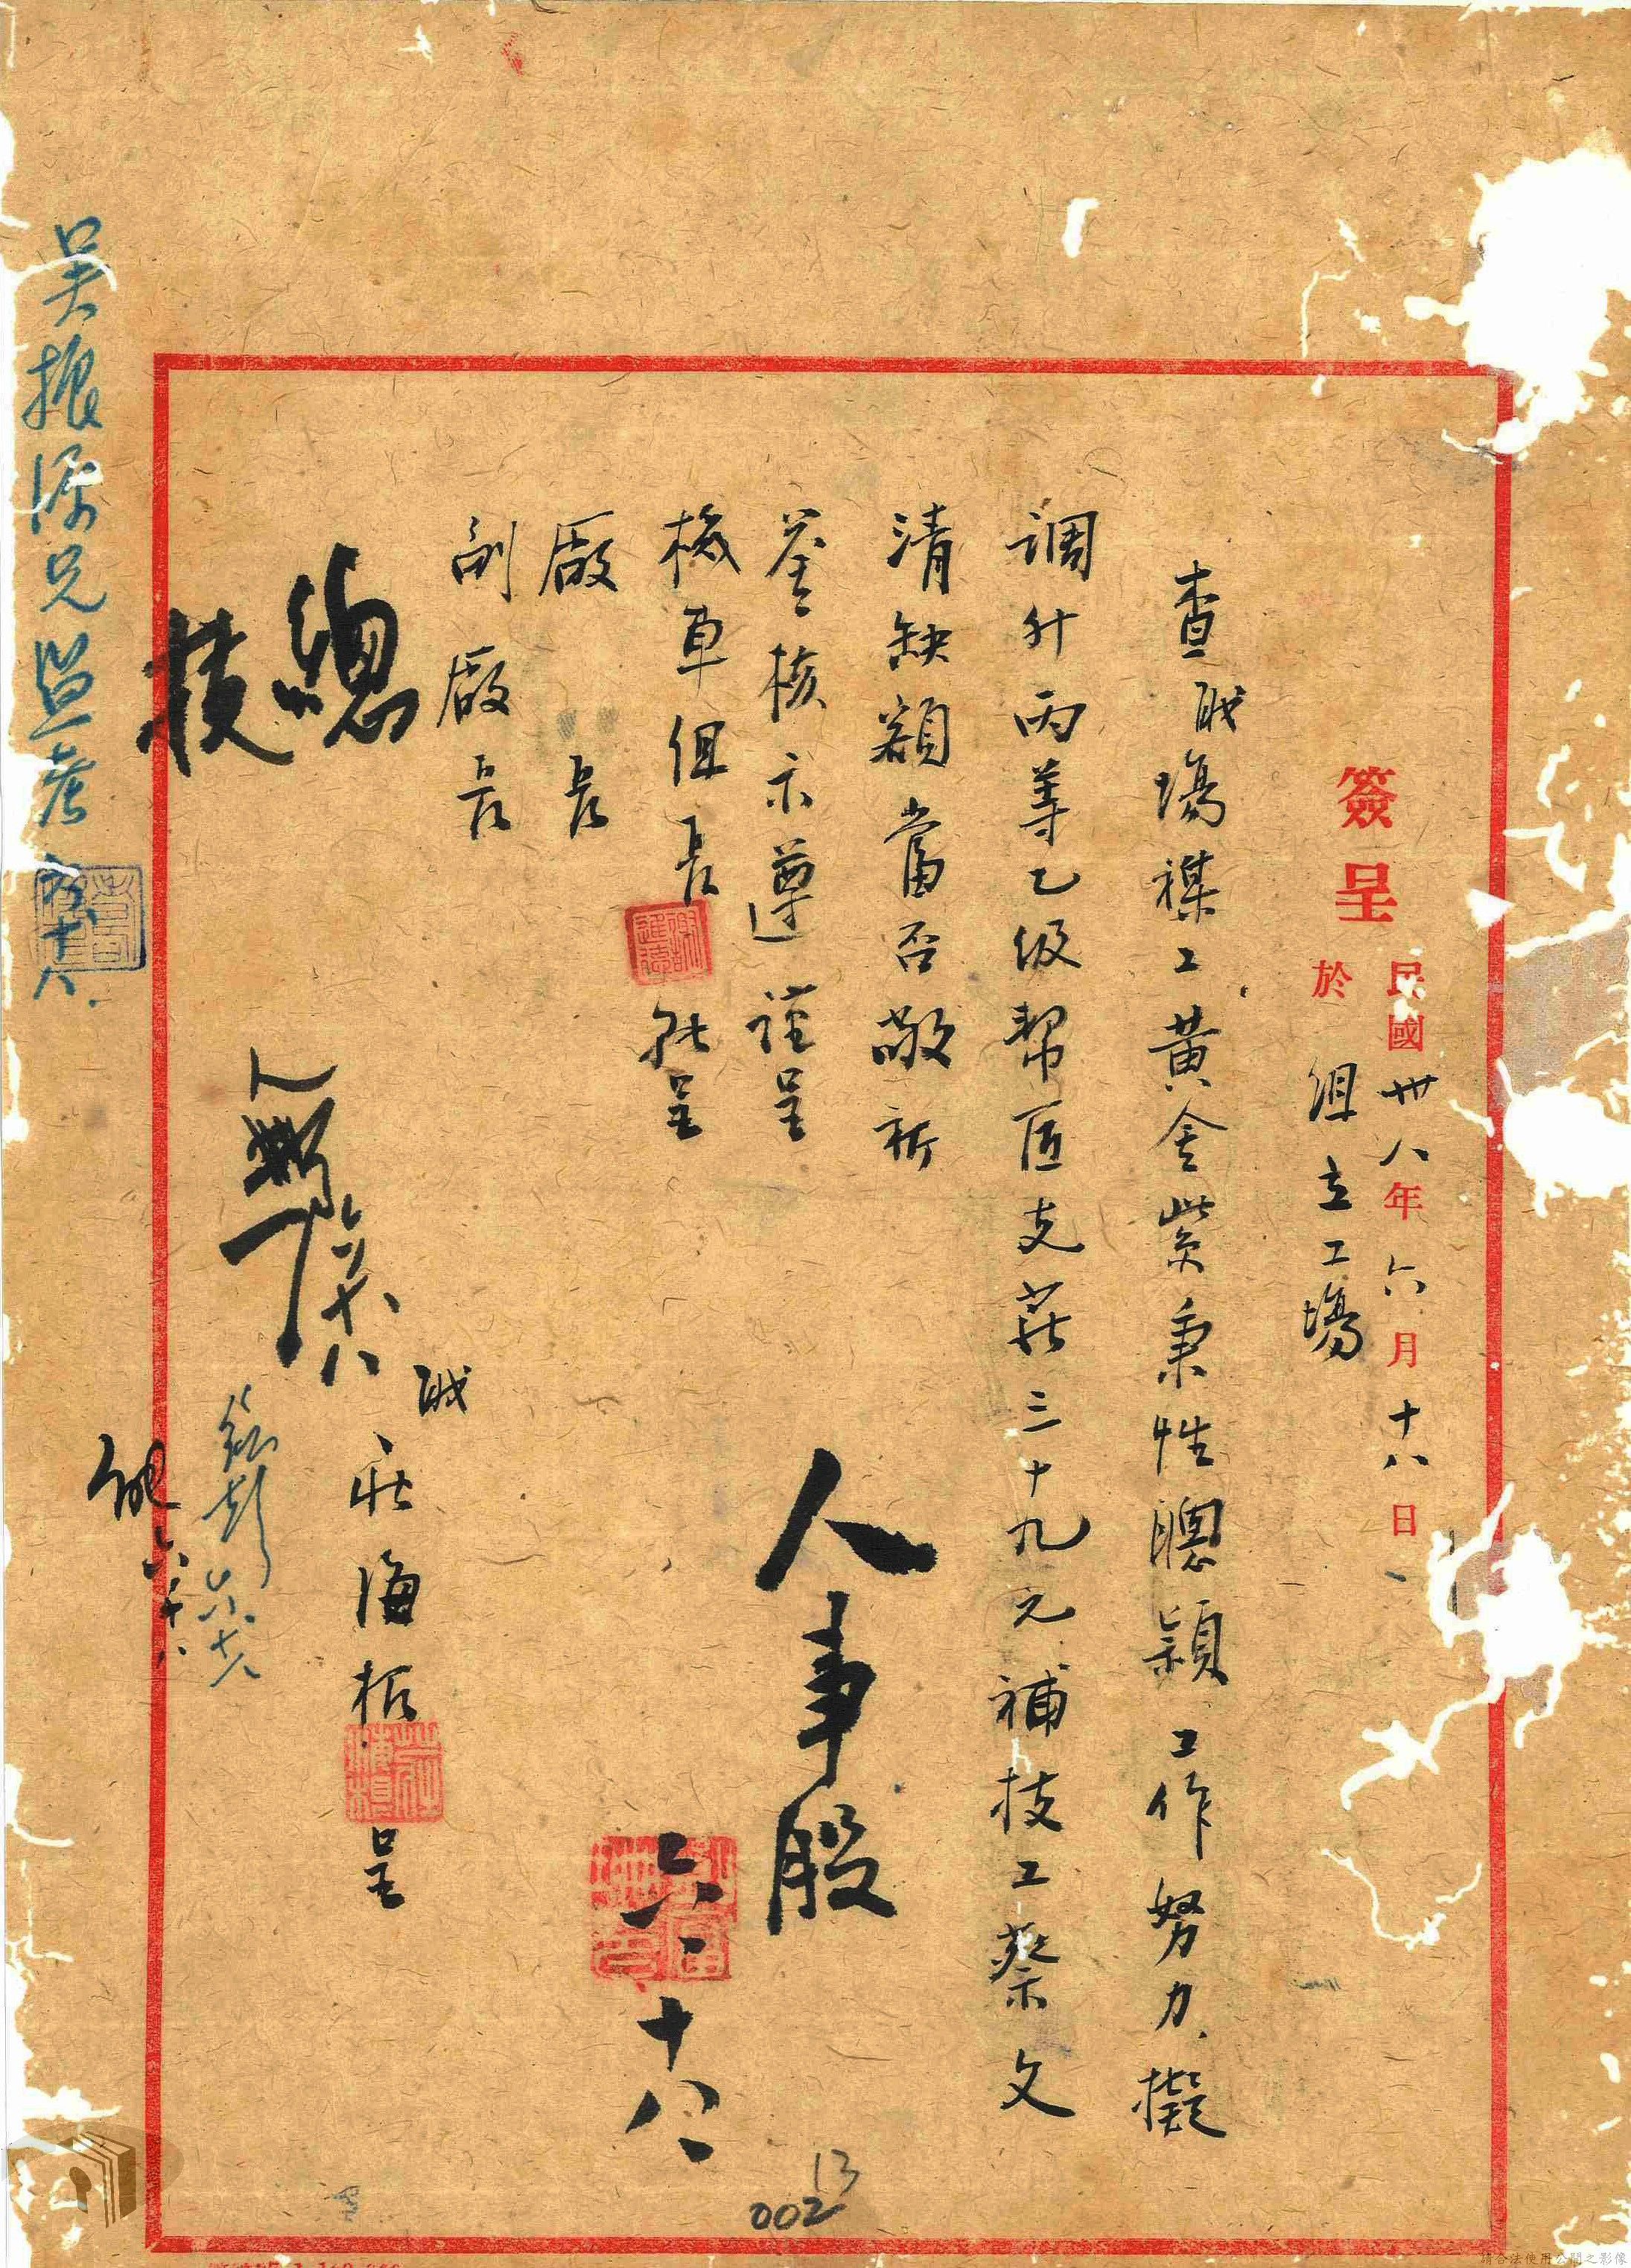 簽呈
民國卅八年六月十八日
於組立工場
查職場裸工黃金紫秉性聰穎工作努力擬
調升丙等乙級幫匠支薪三十九元補技工蔡文
清缺額當否敬祈
鑒核示遵謹呈
機車組長 轉呈
廠長
副廠長
職 莊海根 呈
人事股
六、十八
總
六十八
六六十八
六十八
吳振源兄查考
六十八
13
002
請合法使用公開之影像